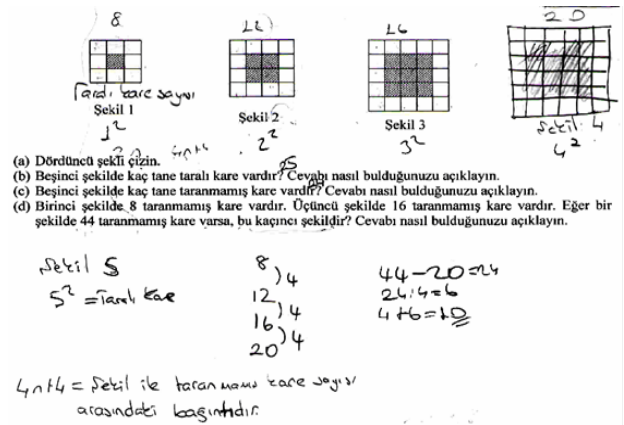 8 12 16 20
Taralı kare sayısı
Şekil 1 Şekil 2 Şekil 3 Şekil 4
1² 2² 3² 4²
4n+4
(a) Dördüncü şekli çizin.
25
(b) Beşinci şekilde kaç tane taralı kare vardır? Cevabı nasıl bulduğunuzu açıklayın.
(c) Beşinci şekilde kaç tane taranmamış kare vardır? Cevabı nasıl bulduğunuzu açıklayın.
(d) Birinci şekilde 8 taranmamış kare vardır. Üçüncü şekilde 16 taranmamış kare vardır. Eğer bir
şekilde 44 taranmamış kare varsa, bu kaçıncı şekildir? Cevabı nasıl bulduğunuzu açıklayın.
Şekil 5
5² = Taralı kare
8
) 4
12
) 4
16
) 4
20
44-20=24
24:4=6
4+6=10
4n+4 = Şekil ile taranmamış kare sayısı
arasındaki bağıntıdır.